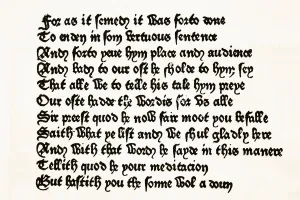 For as it semed it was forto done
To enden in som vertuous sentence
And forto yeue hym place and audience
And bad to our ost he sholde to hym sey
That alle we to telle his tale hym preye
Our oste hadde the wordis for vs alle
Sir preest quod he now fair moot you befalle
Saith what ye list and we shul gladly here
And with that word he sayde in this manere
Tellith quod he your meditacion
But hastith you the sonne wol a doun